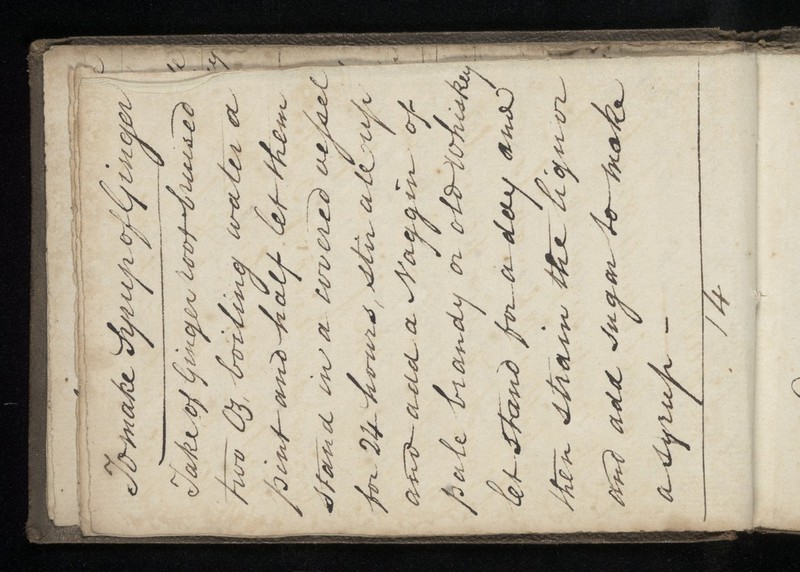 To make Syrup of Ginger
Take of Ginger root bruised
two Oz, boiling water a
pint and half let them
stand in a covered vessel
for 24 hours, stir all up
and add a Naggin of
pale brandy or old Whiskey
let stand for a day and
then strain the liquor
and add sugar to make
a syrup –
14